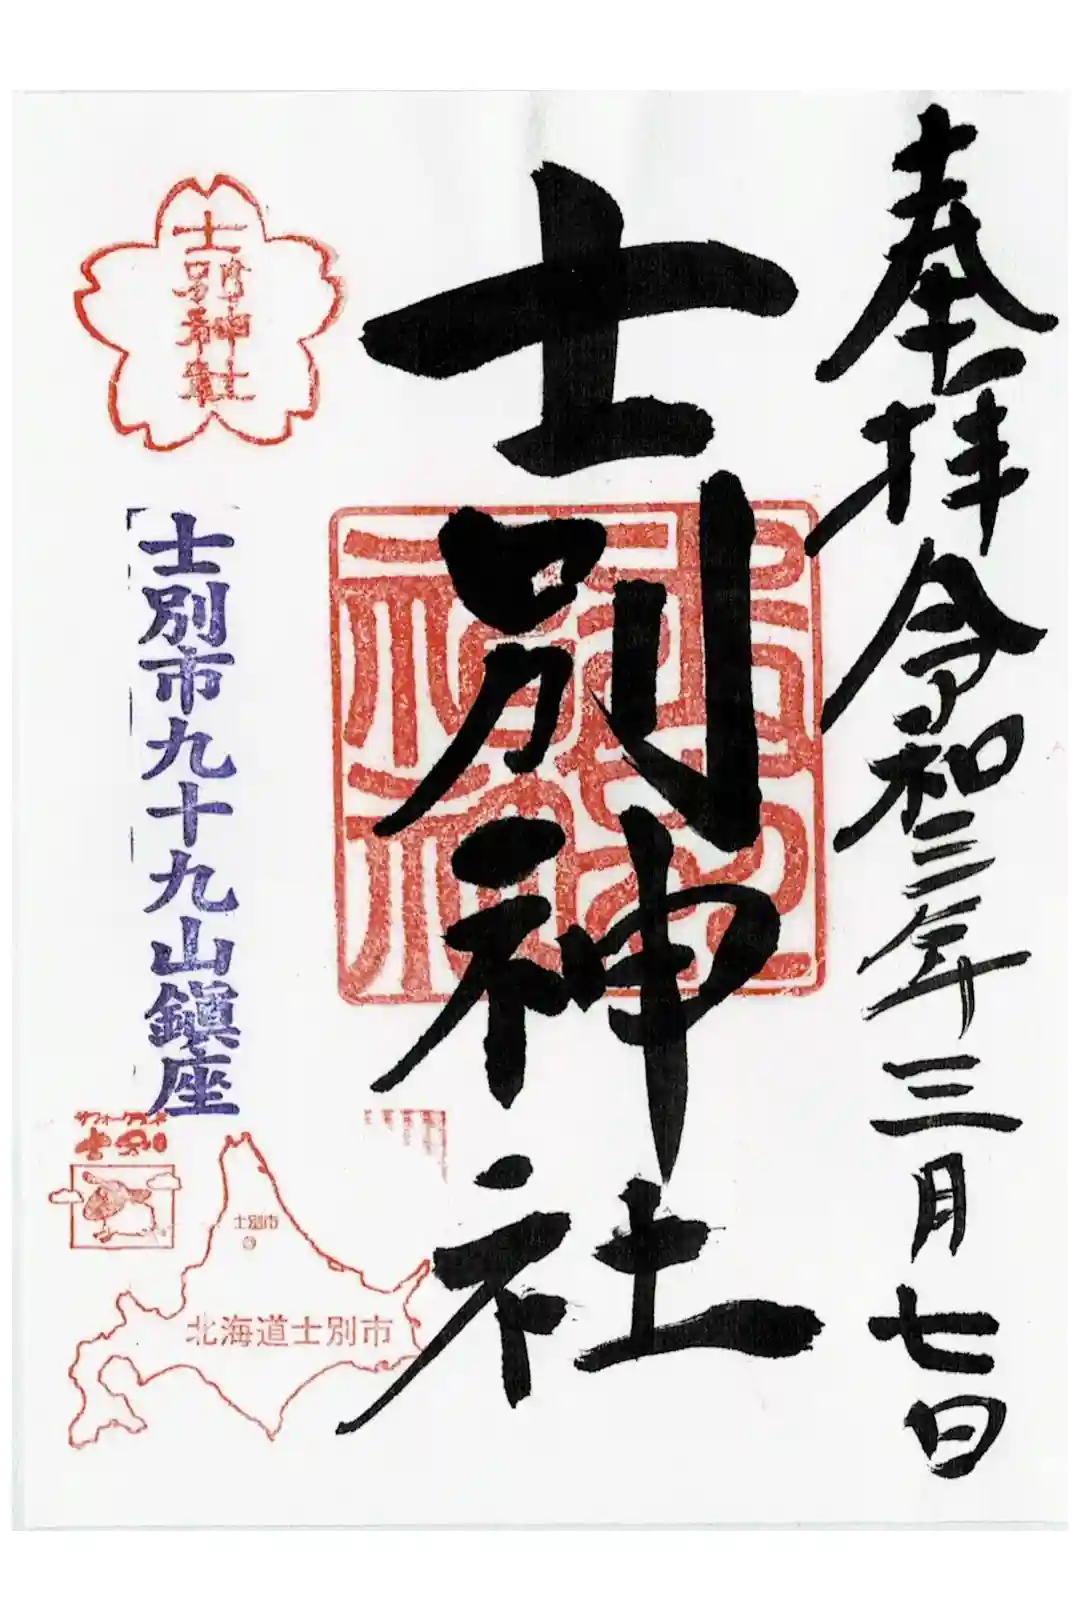 奉拝
令和三年三月七日
士別神社
士別神社
士別市九十九山鎮座
サフォークランド
士別
士別市
北海道士別市